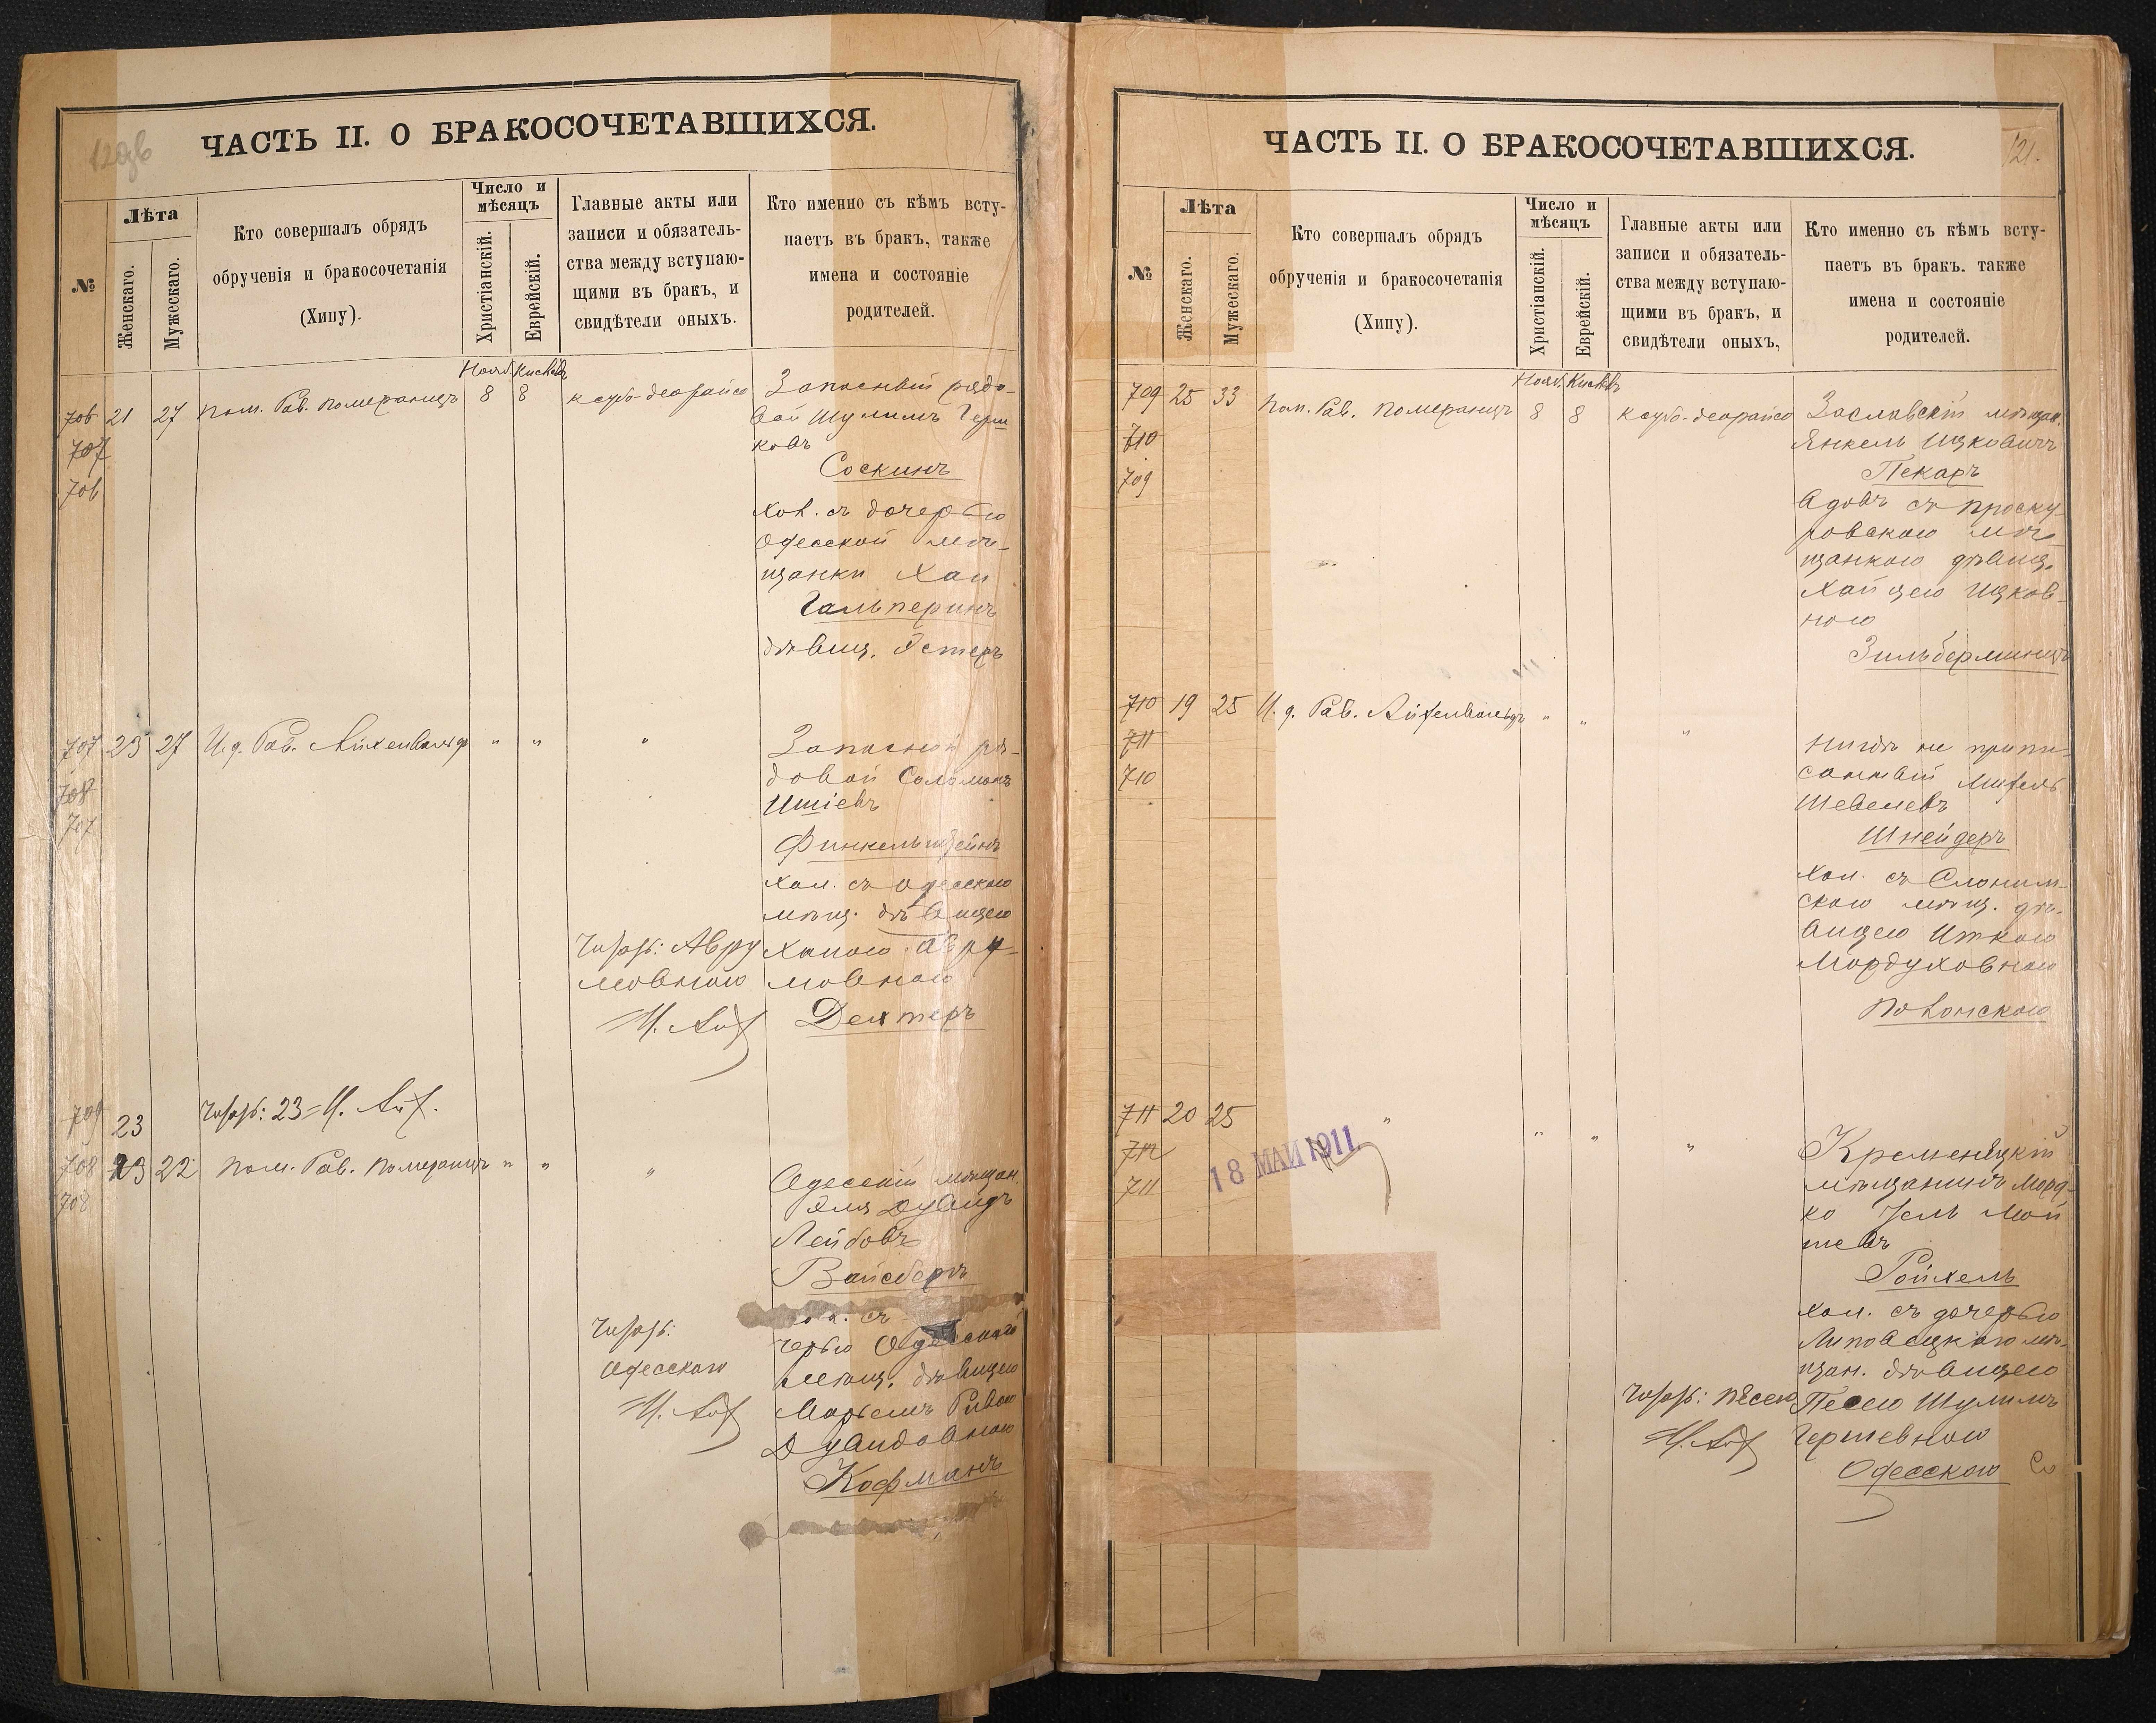 ЧАСТЬ II. О БРАКОСОЧЕТАВШИХСЯ.
№
Лѣта
Женскаго.
Мужескаго.
Кто совершалъ обрядъ
обрученія и бракосочетанія
(Хипу).
Число и
мѣсяцъ
Христіанскій.
Еврейскій.
Главные акты или
записи и обязатель-
ства между вступаю-
щими въ бракъ, и
свидѣтели оныхъ.
Кто именно съ кѣмъ всту-
паетъ въ бракъ, также
имена и состояніе
родителей.
Нояб. Кислевъ
706 21 27 Пом. Рав. Померанцъ 8 8 ксубо-деорайсо
707
706
Запасный рядо-
вой Шулимъ Герш
ковъ
Соскинъ
хол. съ дочерью
Одесской мѣ-
щанки Хаи
Гальперинъ
дѣвиц. Эстеръ
707 23 27 И. д. Рав. Айхенвальдъ " " "
708
707
Запасной ря-
довой Соломонъ
Ишіевъ
Финкельштейнъ
хол. съ Одесскою
мѣщ. дѣвицею
Ханою Авру-
мовною
Дехтеръ
Авру
мовною
И. Айх
709 23
23 И. Айх.
708 23 22 Пом. Рав. Померанцъ " " "
708
Одесскій мѣщан.
Эля Дувидъ
Лейбовъ
Вайсбергъ
съ
черью Одесскаго
мѣщ. дѣвицею
Марьемъ Ривою
Дувидовною
Кофманъ
Одесскаго
И. Айх
ЧАСТЬ II. О БРАКОСОЧЕТАВШИХСЯ.
121.
№
Лѣта
Женскаго.
Мужескаго.
Кто совершалъ обрядъ
обрученія и бракосочетанія
(Хипу).
Число и
мѣсяцъ
Христіанскій.
Еврейскій.
Главные акты или
записи и обязатель-
ства между вступаю-
щими въ бракъ, и
свидѣтели оныхъ,
Кто именно съ кѣмъ всту-
паетъ въ бракъ. также
имена и состояніе
родителей.
Нояб. Кислевъ
709 25 33 Пом. Рав. Померанцъ 8 8 ксубо-деорайсо
710
709
Заславскій мѣщан.
Янкель Ицковичъ
Пекаръ
вдовъ съ Проску
ровскою мѣ
щанкою дѣвиц.
Хайцею Ицков-
ною
Зильберминцъ
710 19 25 И. д. Рав. Айхенвальдъ " " "
711
710
Нигдѣ не припи-
санный Михель
Шевелевъ
Шнейдеръ
хол. съ Слоним-
скою мѣщ. дѣ-
вицею Иткою
Мордуховною
711 20 25 " " " "
712
711
18 МАЙ 1911
Кременецкій
мѣщанинъ Морд-
ко Зель Мой
шевъ
Ройхель
хол. съ дочерью
Липовецкаго мѣ-
щан. дѣвицею
Песею Шулимъ
Гершевною
Одесскою
Песею
И. Айх